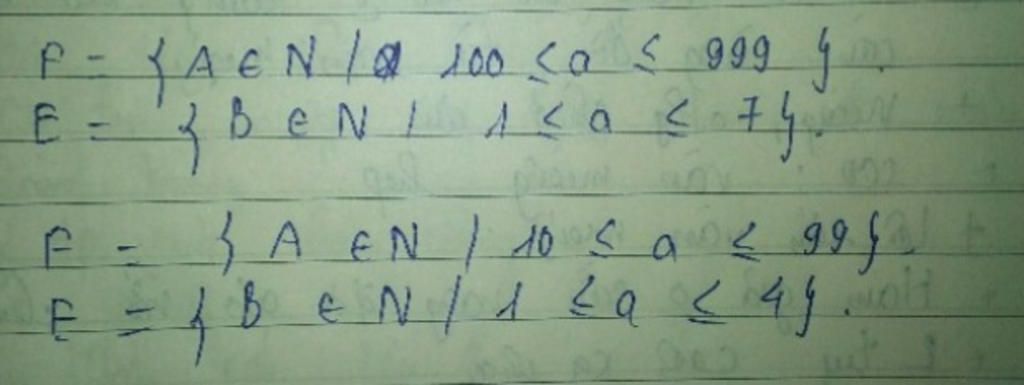 F = { A ∈ N / 100 ≤ a ≤ 999 }.
E = { B ∈ N / 1 ≤ a ≤ 7 }.
F = { A ∈ N / 10 ≤ a ≤ 99 }.
F = { B ∈ N / 1 ≤ a ≤ 4 }.